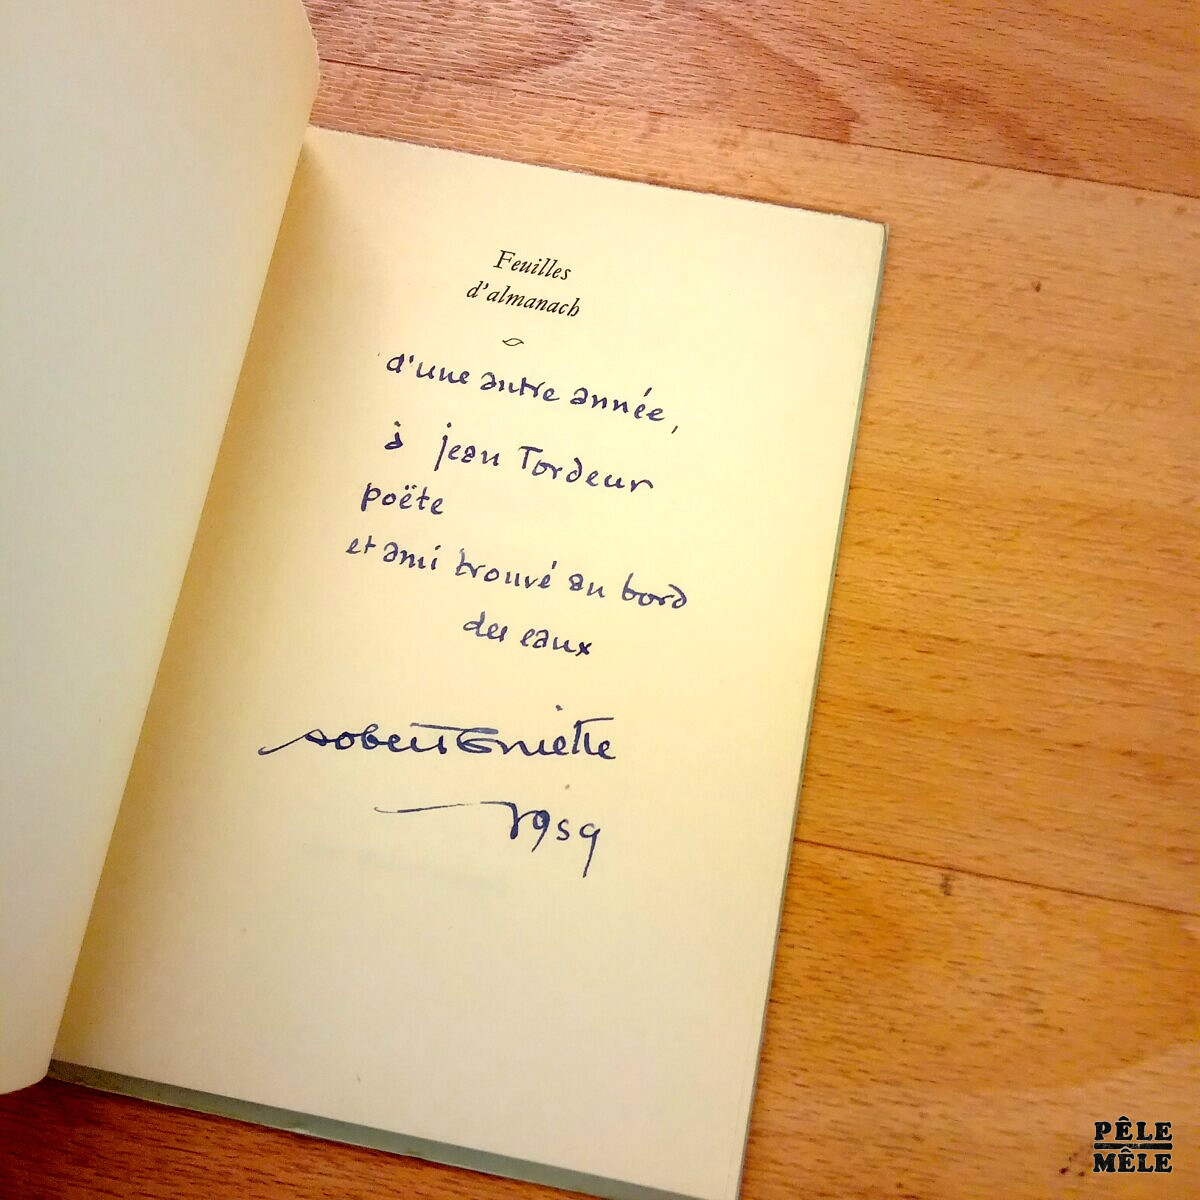 Feuilles
d'almanach
d'une autre année,
à jean Tordeur
poëte
et ami trouvé au bord
des eaux
robert Guiette
1959
PÊLE
MÊLE